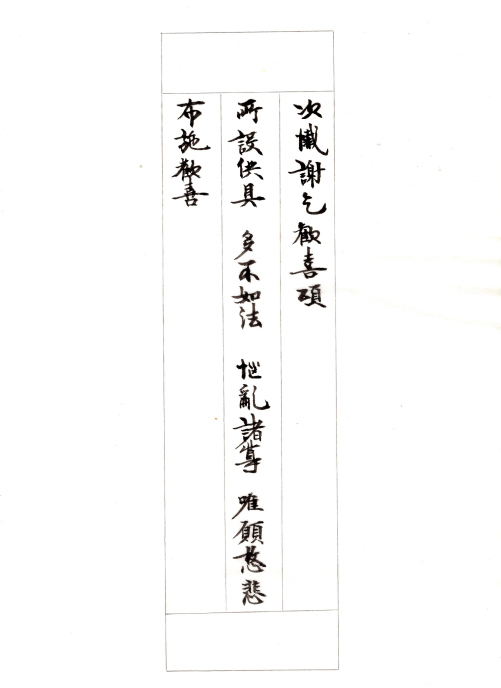 次懴謝乞歡喜頌
所設供具 多不如法 惱亂諸尊 唯願慈悲
布施歡喜